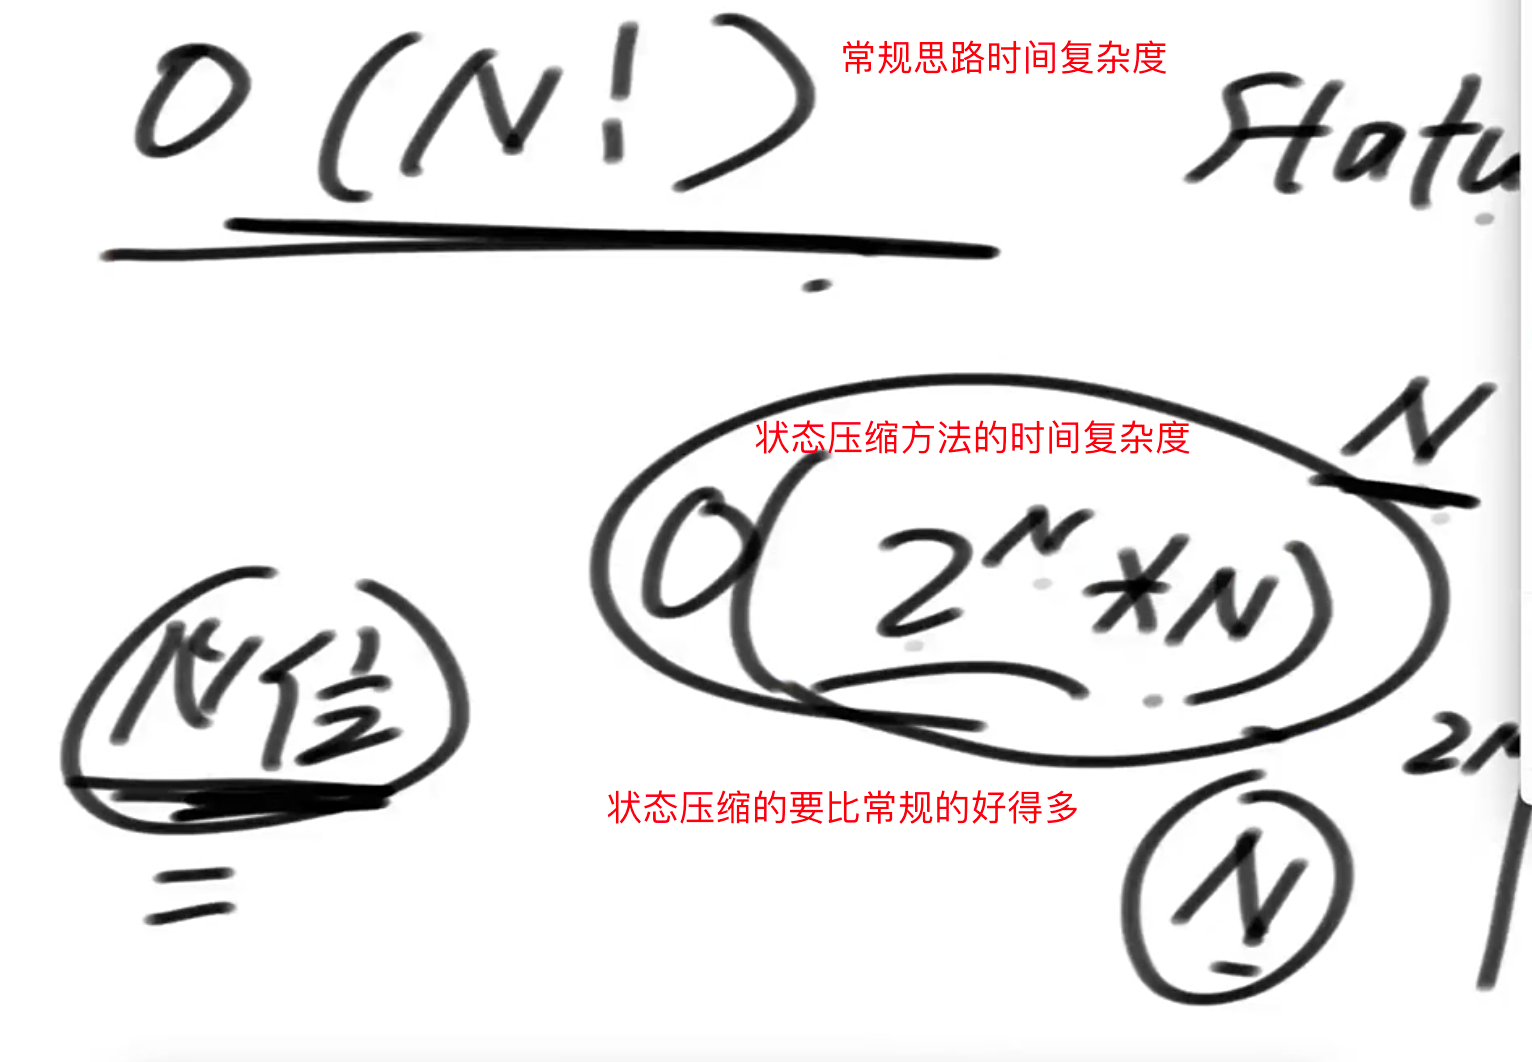 O(N!) 常规思路时间复杂度
Statu
N
状态压缩方法的时间复杂度
O(2^N*N)
N位
状态压缩的要比常规的好得多
N
=